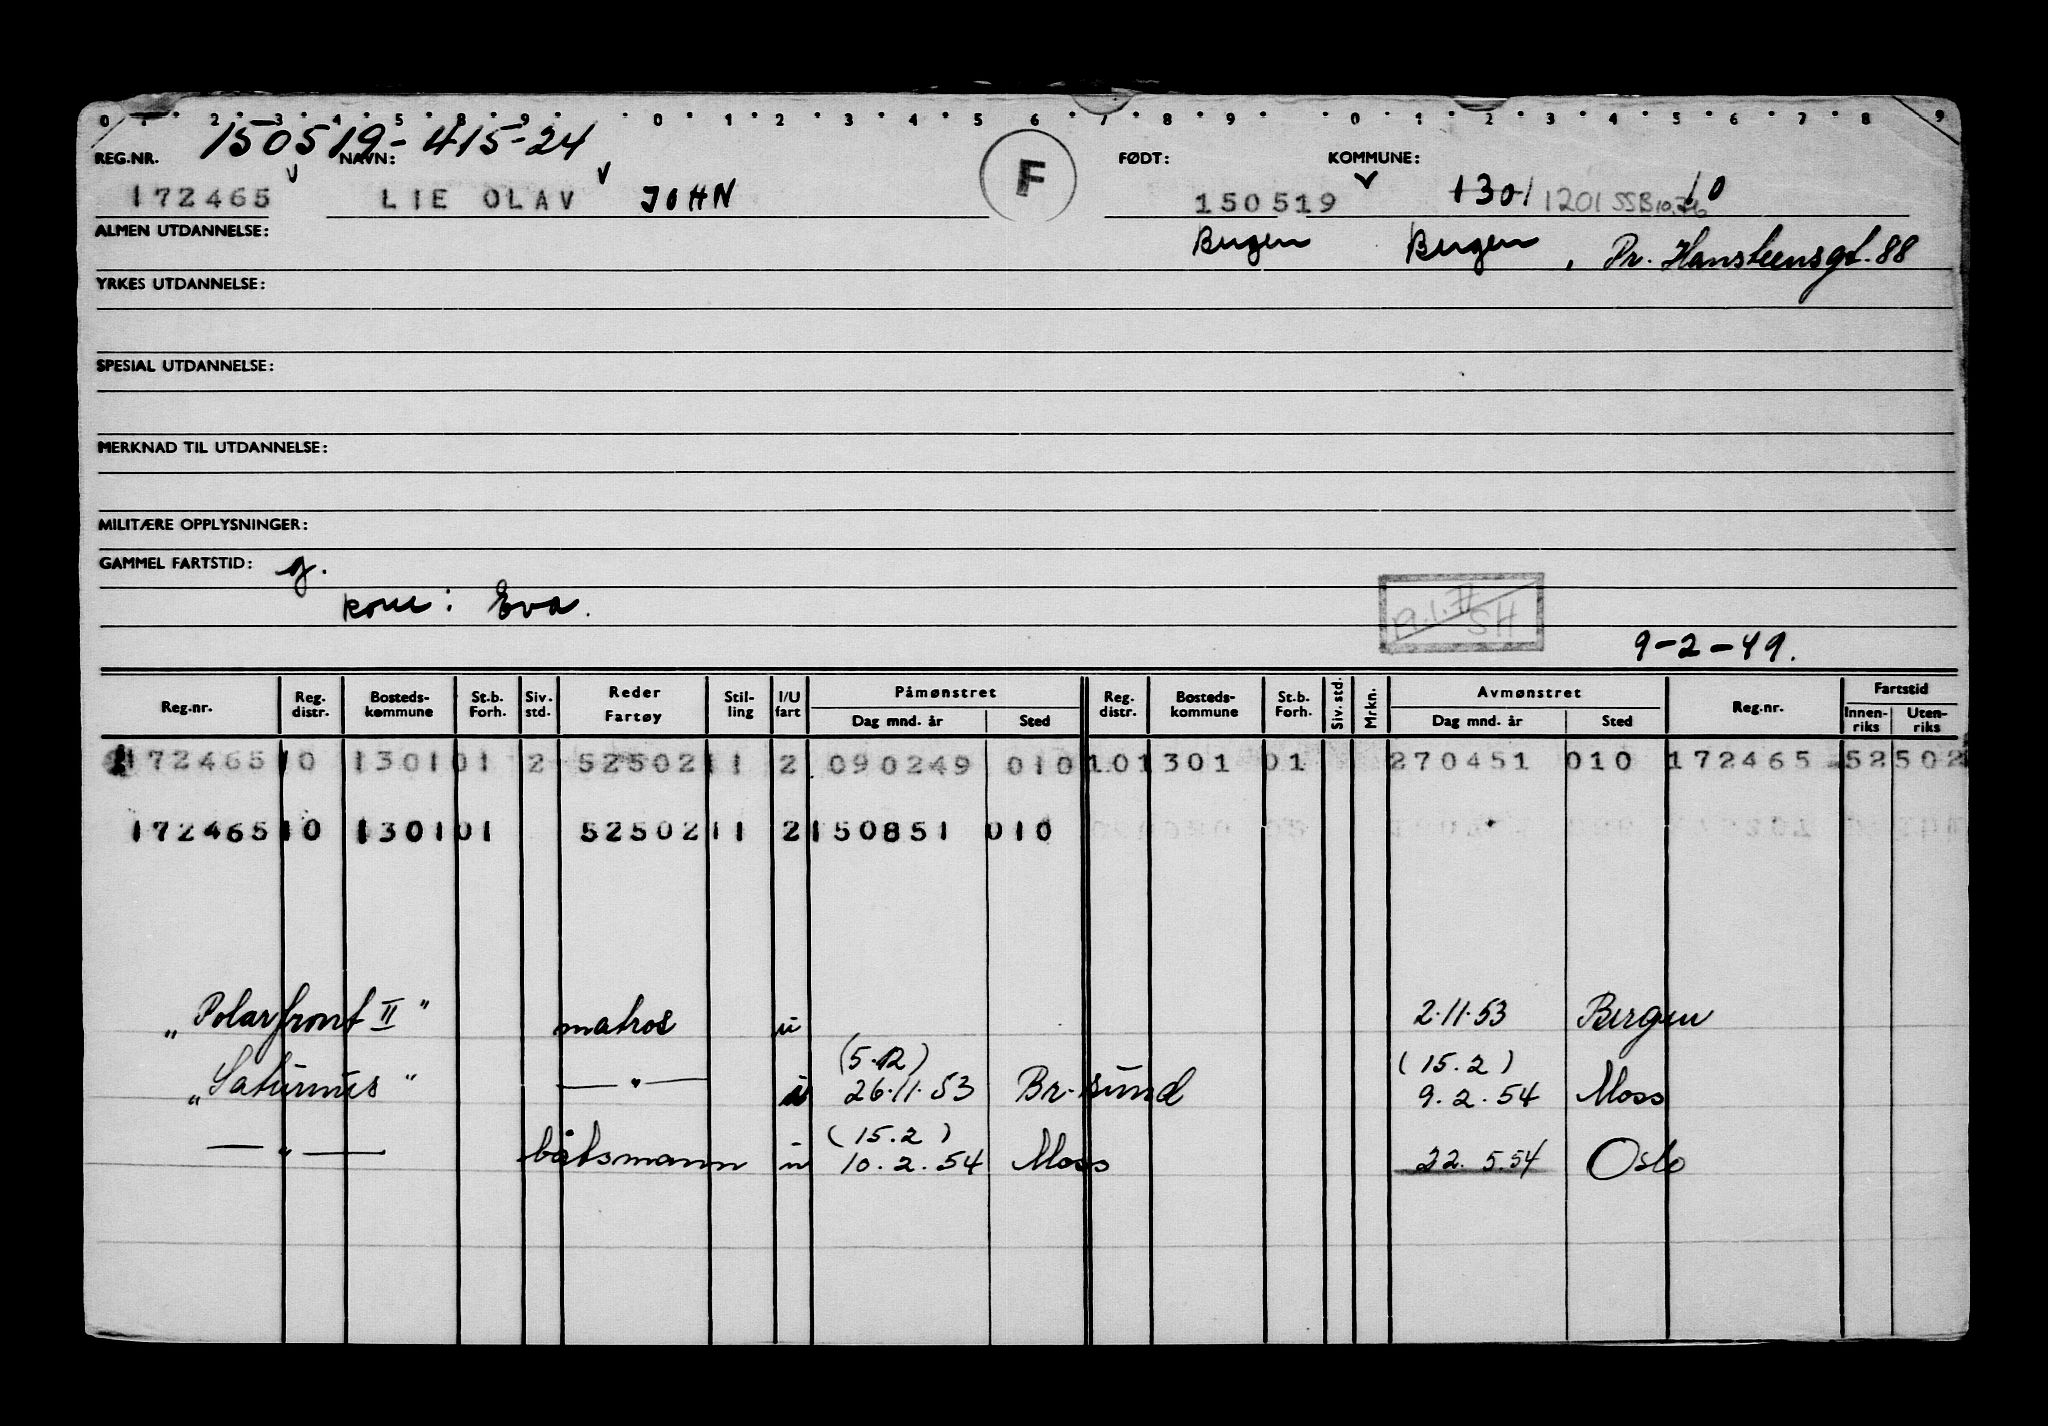 0 1 2 3 4 5 8 9 0 1 2 3 4 5 6 7 8 9 0 1 2 3 4 5 6 7 8 9
150519-415-24
REG.NR. NAVN: F FØDT: KOMMUNE:
172465 LIE OLAV JOHN 150519 1301 1201 SSB 10
ALMEN UTDANNELSE: Bergen Bergen, Pr. Hansteensgt. 88
YRKES UTDANNELSE:
SPESIAL UTDANNELSE:
MERKNAD TIL UTDANNELSE:
MILITÆRE OPPLYSNINGER:
GAMMEL FARTSTID: g.
kone: Eva.
SH
9-2-49.
Reg.nr. Reg. distr. Bosteds- kommune St.b. Forh. Siv. std. Reder Fartøy Stil- ling I/U fart Påmønstret Dag mnd. år Sted Reg. distr. Bosteds- kommune St.b. Forh. Siv. std. Mrkn. Avmønstret Dag mnd. år Sted Reg.nr. Fartstid Innen- riks Uten- riks
172465 10 1301 01 2 52502 11 2 090249 010 10 1301 01 270451 010 172465 52502
172465 10 1301 01 52502 11 2 150851 010
"Polarfront II" matros u 2.11.53 Bergen
(5.12) (15.2)
"Saturnus" — " — u 26.11.53 Br.sund 9.2.54 Moss
(15.2)
— " — båtsmann u 10.2.54 Moss 22.5.54 Oslo